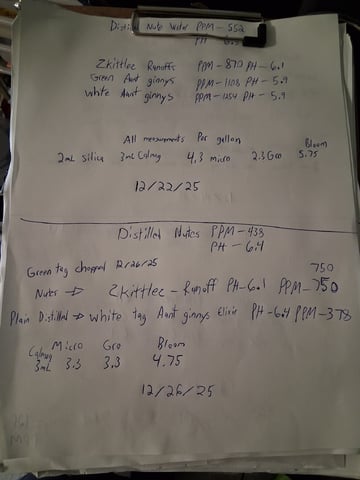 Distilled Nute Water PPM - 552
PH - 6.
Zkittlez Runoffs PPM - 870 PH - 6.1
Green Aunt ginnys PPM - 1108 PH - 5.9
White Aunt ginnys PPM - 1254 PH - 5.9
All measurements Per gallon
2mL silica 3mL Calmag 4.3 micro 2.3 Gro Bloom 5.75
12/22/25
Distilled Nutes PPM - 438
PH - 6.4
Green tag chopped 12/26/25 750
Nutes → Zkittlez - Runoff PH - 6.1 PPM - 750
Plain Distilled → White tag Aunt ginnys Elixir PH - 6.4 PPM - 378
Calmag Micro Gro Bloom
3mL 3.3 3.3 4.75
12/26/25